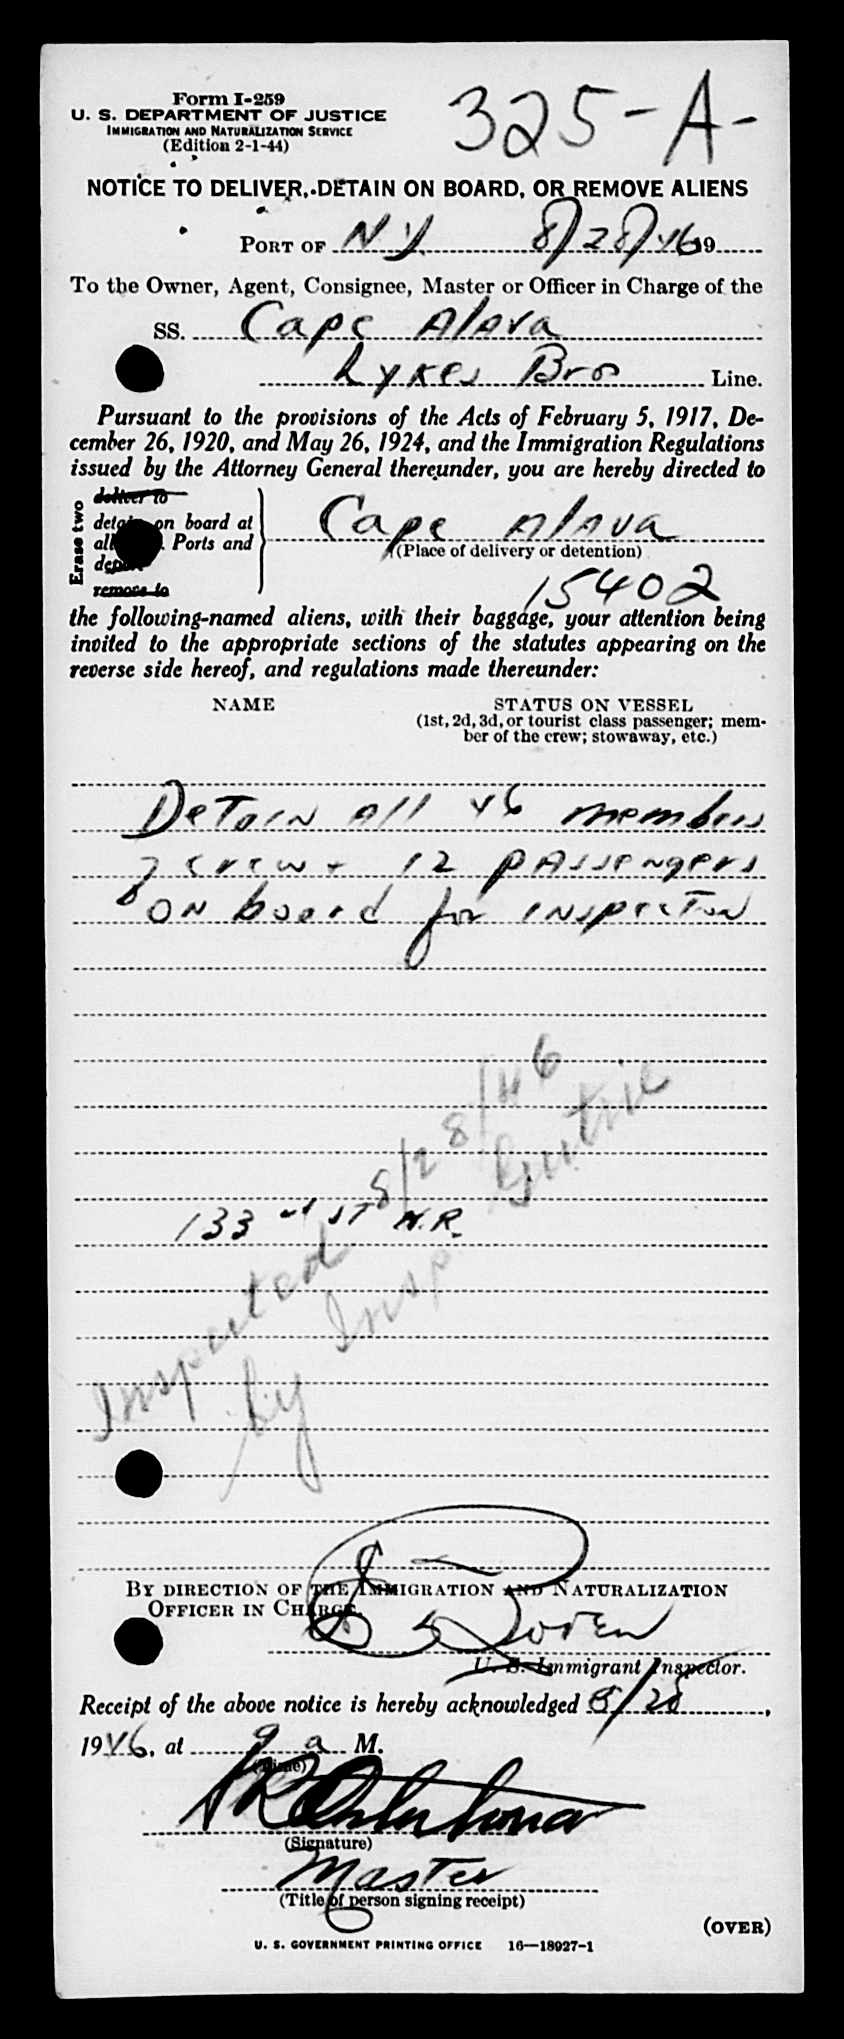 Form I-259
U. S. DEPARTMENT OF JUSTICE
IMMIGRATION AND NATURALIZATION SERVICE
(Edition 2-1-44)
325-A-
NOTICE TO DELIVER, DETAIN ON BOARD, OR REMOVE ALIENS
PORT OF N Y 8/28/46 19
To the Owner, Agent, Consignee, Master or Officer in Charge of the
SS. Cape Alava
Lykes Bros Line.
Pursuant to the provisions of the Acts of February 5, 1917, De-
cember 26, 1920, and May 26, 1924, and the Immigration Regulations
issued by the Attorney General thereunder, you are hereby directed to
Erase two
deliver to
detain on board at
all Ports and
deport
remove to
Cape Alava
(Place of delivery or detention)
15402
the following-named aliens, with their baggage, your attention being
invited to the appropriate sections of the statutes appearing on the
reverse side hereof, and regulations made thereunder:
NAME
STATUS ON VESSEL
(1st, 2d, 3d, or tourist class passenger; mem-
ber of the crew; stowaway, etc.)
Detain all 46 members
of crew + 12 passengers
on board for inspection
133 rd ST N.R.
Inspected 8/28/46
by Insp. Gutrie
BY DIRECTION OF THE IMMIGRATION AND NATURALIZATION
OFFICER IN CHARGE.
U. S. Immigrant Inspector.
Receipt of the above notice is hereby acknowledged 8/28,
1946, at 9 a M.
(Time)
(Signature)
Master
(Title of person signing receipt)
(OVER)
U. S. GOVERNMENT PRINTING OFFICE 16—18927-1